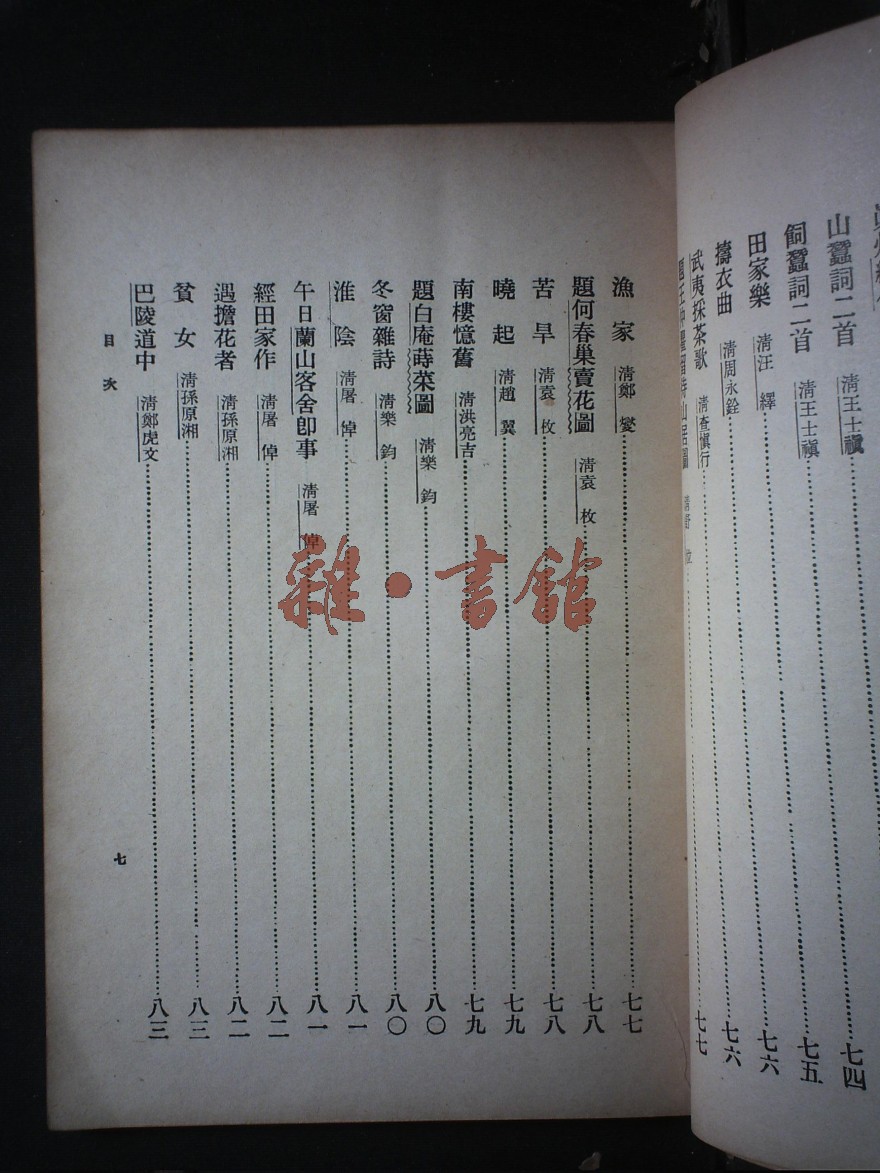 山蠶詞二首 清王士禛 七四
飼蠶詞二首 清王士禛 七五
田家樂 清汪繹 七六
擣衣曲 清周永銓 七六
武夷採茶歌 清查慎行 七七
漁家 清鄭燮 七七
題何春巢賣花圖 清袁枚 七八
苦旱 清袁枚 七八
曉起 清趙翼 七九
南樓憶舊 清洪亮吉 七九
題白庵蒔菜圖 清樂鈞 八〇
冬窗雜詩 清樂鈞 八〇
淮陰 清屠倬 八一
午日蘭山客舍卽事 清屠倬 八一
經田家作 清屠倬 八二
遇擔花者 清孫原湘 八二
貧女 清孫原湘 八三
巴陵道中 清鄭虎文 八三
目次
七
雜·書館